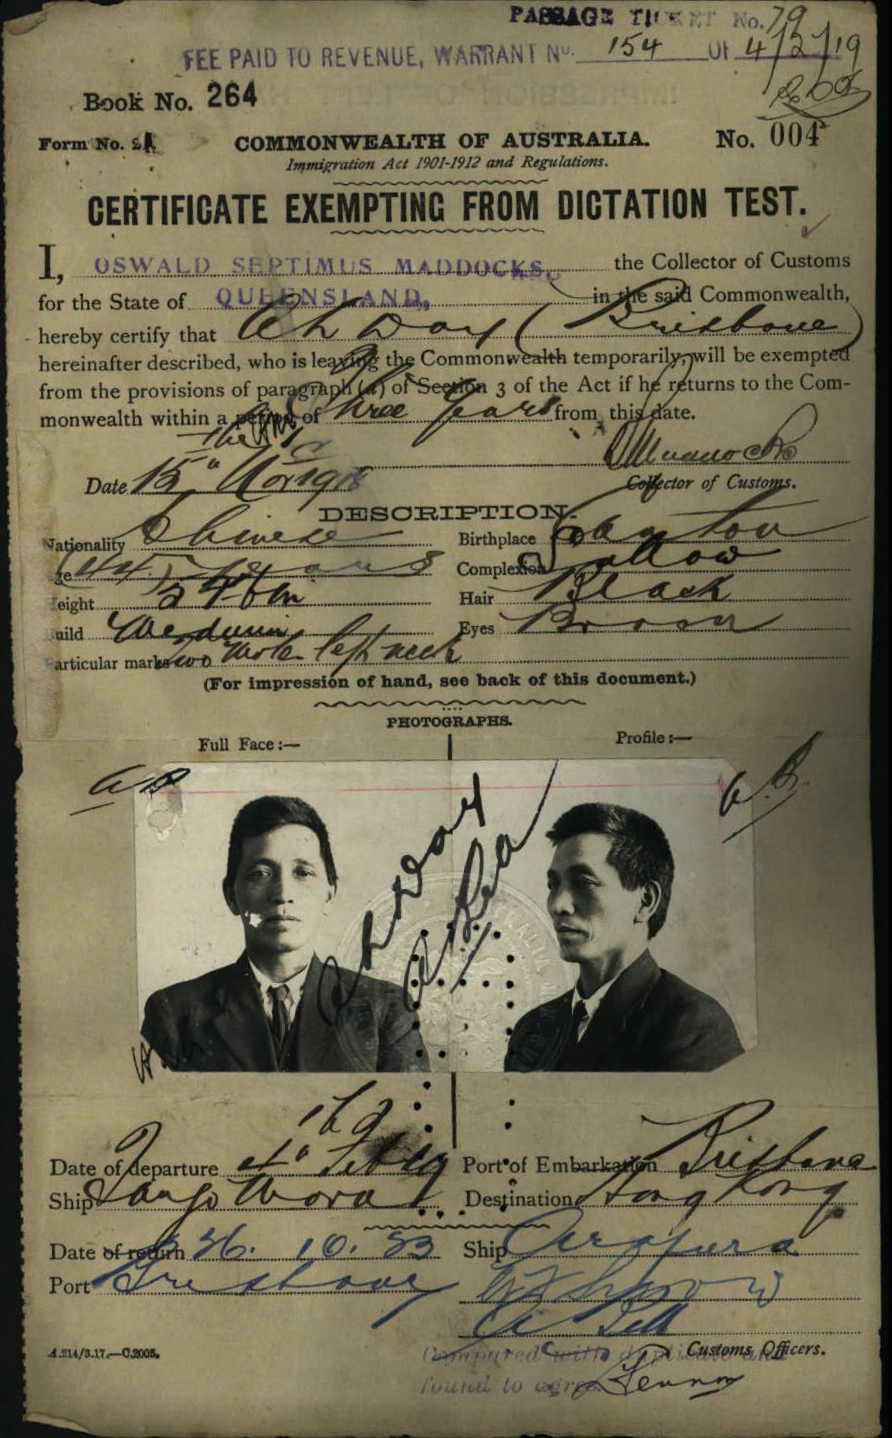 PASSAGE TICKET No. 79
FEE PAID TO REVENUE, WARRANT No. 154 Of 4/2/19
Book No. 264
Form No. 21 COMMONWEALTH OF AUSTRALIA. No. 004
Immigration Act 1901-1912 and Regulations.
CERTIFICATE EXEMPTING FROM DICTATION TEST.
I, OSWALD SEPTIMUS MADDOCKS, the Collector of Customs
for the State of QUEENSLAND, in the said Commonwealth,
hereby certify that Ah Day (Brisbane)
hereinafter described, who is leaving the Commonwealth temporarily, will be exempted
from the provisions of paragraph (a) of Section 3 of the Act if he returns to the Com-
monwealth within a period of Three Years from this date.
Date 15th Nov 1918
Collector of Customs.
DESCRIPTION.
Nationality Chinese Birthplace Canton
Age 44 years Complexion Sallow
Height Hair Black
Build Medium Eyes Brown
Particular marks two mole left neck
(For impression of hand, see back of this document.)
PHOTOGRAPHS.
Full Face:— Profile:—
Ah Day
Date of departure 4th Feb 19 Port of Embarkation Brisbane
Ship Tango Maru Destination Hong Kong
Date of return 26. 10. 23 Ship Arafura
Port Brisbane
A Bell
A.214/3.17.—C.2005. Customs Officers.
Compared with duplicate and
found to agree Lennon